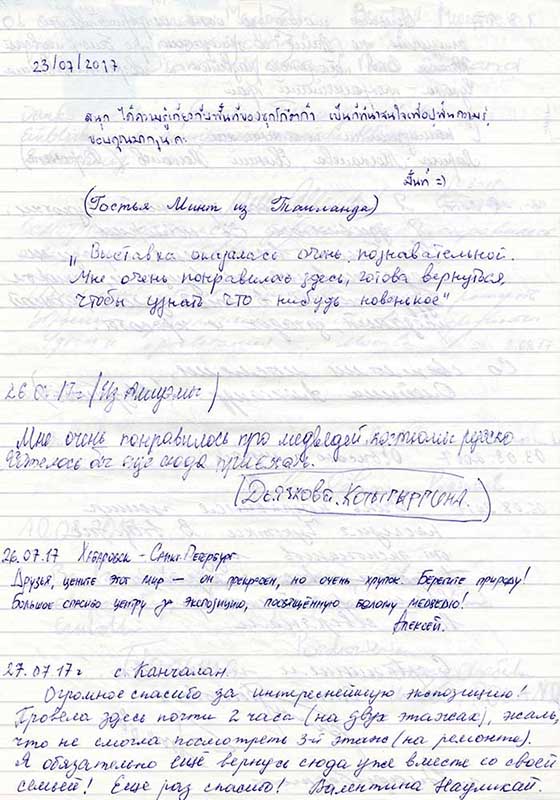 23/07/2017
สนุก ได้ความรู้เกี่ยวกับพื้นที่ของชุกโกตกา เป็นที่ที่น่าสนใจเพื่อ พื้นความรู้
ขอบคุณมากๆนะคะ
มิ้นท์ =)
(Гостья Минт из Таиланда)
„Выставка оказалась очень познавательной.
Мне очень понравилось здесь, готова вернуться,
чтобы узнать что-нибудь новенькое"
26 07 17г (Из Амгуэмы)
Мне очень понравилось про медведей, костюмы
Хотелось бы ещё сюда приехать.
26.07.17 Хабаровск - Санкт-Петербург
Друзья, цените этот мир — он прекрасен, но очень хрупок. Берегите природу!
Большое спасибо центру за экспозицию, посвящённую белому медведю!
Алексей.
27.07.17г с. Канчалан
Огромное спасибо за интереснейшую экспозицию!
Провела здесь почти 2 часа (на двух этажах), жаль,
что не смогла посмотреть 3-й этаж (на ремонте).
Я обязательно ещё вернусь сюда уже вместе со своей
семьёй! Еще раз спасибо! Валентина Науликай.